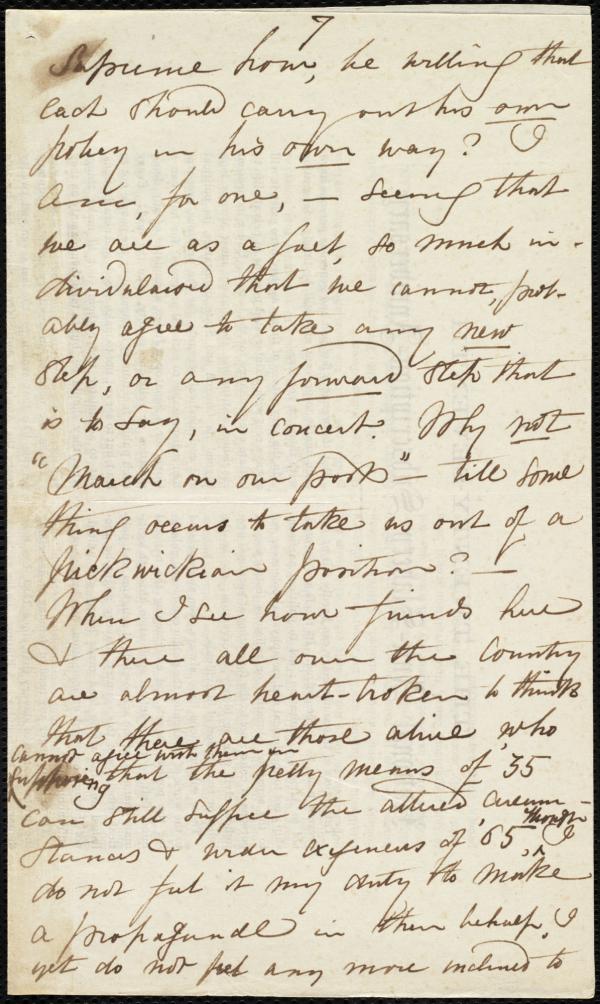 7
Supreme hour, be willing that
each should carry out his own
policy in his own way? I
am, for one, — seeing that
we are as a fact, so much in-
dividualized that we cannot, prob-
ably agree to take any new
step, or any forward step that
is to say, in concert. Why not
"March on our foots" — till some
thing occurs to take us out of a
Pickwickian position? —
When I see how friends here
& there all over the Country
are almost heart-broken to think
that there are those alive, who
cannot agree with them in
supposing that the petty means of '35
can still suffice the altered circum-
stances & wider exigencies of '65, though I
do not feel it my duty to make
a propagande in their behalf, I
yet do not feel any more inclined to